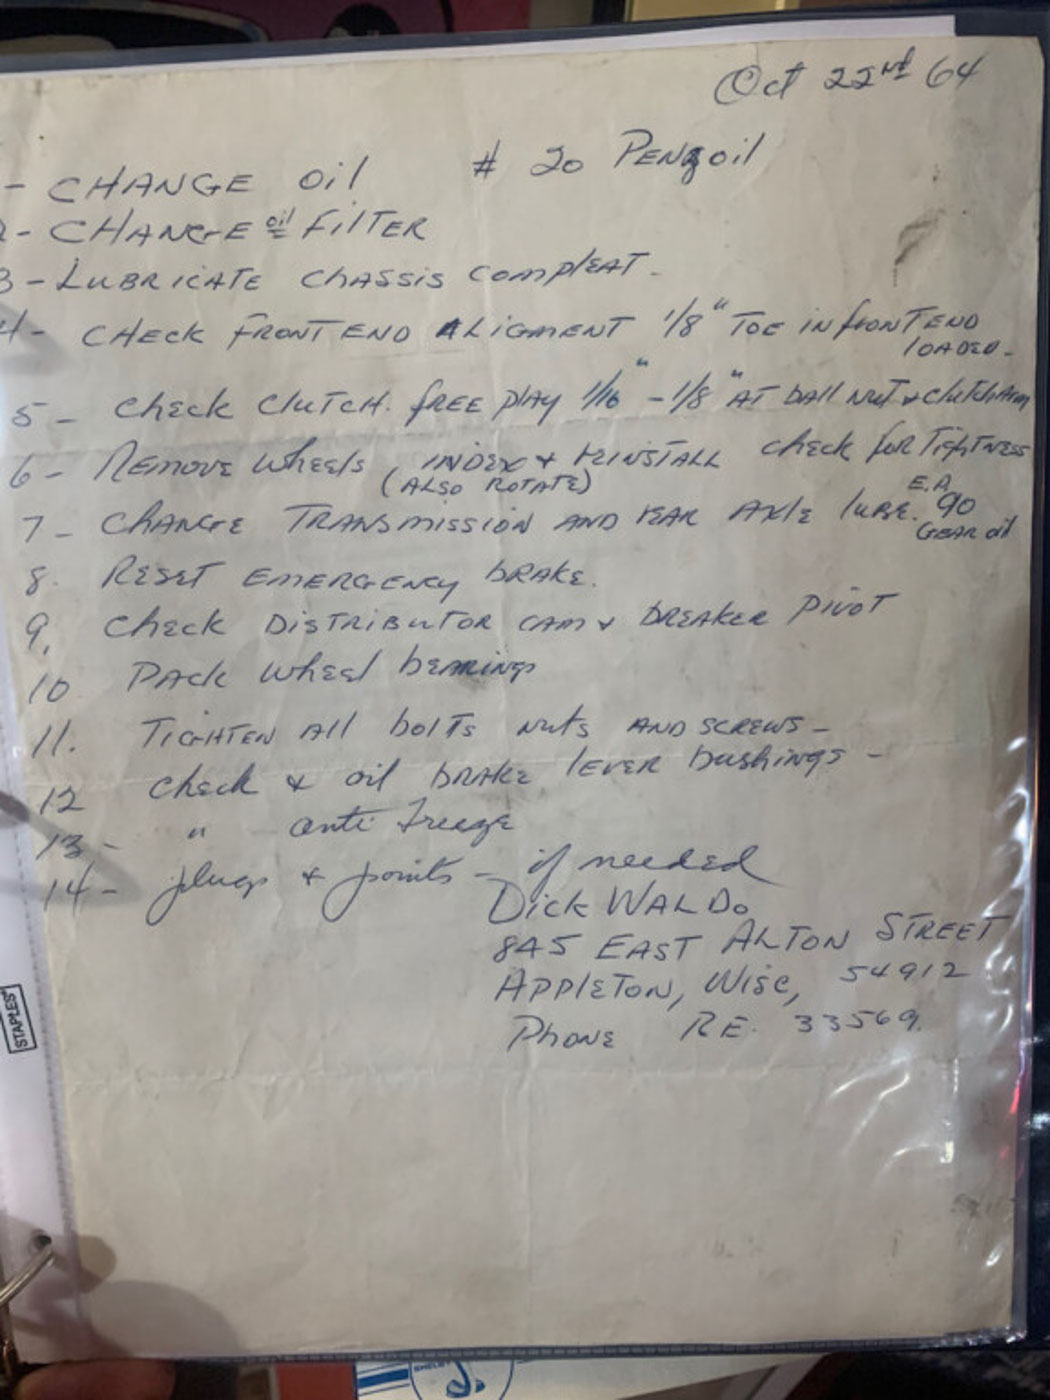 Oct 22nd 64
- CHANGE Oil # 20 PENZOil
2- CHANGE oil FilTER
3- LUBRICATE CHASSIS COMPlEAT-
4- CHECK FRONT END ALIGMENT 1/8" TOE IN fRONT END
LOADED-
5- Check Clutch. FREE PlAY 1/16" - 1/8" AT bAll NUT & Clutch Arm
6- REMOVE WhEEls, INDEX & REINSTALL check for TightNESS
(ALSO ROTATE)
E.P.
7- CHANGE TRANSMISSION AND REAR AXlE lUBE. 90
GEAR oil
8. RESET EMERGENCY bRAKE.
9. Check DISTRIBUTOR CAM & BREAKER PIVOT
10 PACK Wheel bEARINGS
11. TIGHTEN All bolTs NUTS AND SCREWS-
12 Check & oil bRAKE lEVER bushings-
13- " anti freeze
14- plugs & points - if needed
Dick WALDO
845 EAST ALTON STREET
APPLETON, Wisc, 54912
PhONE RE. 33569.
STAPLES
SHELBY